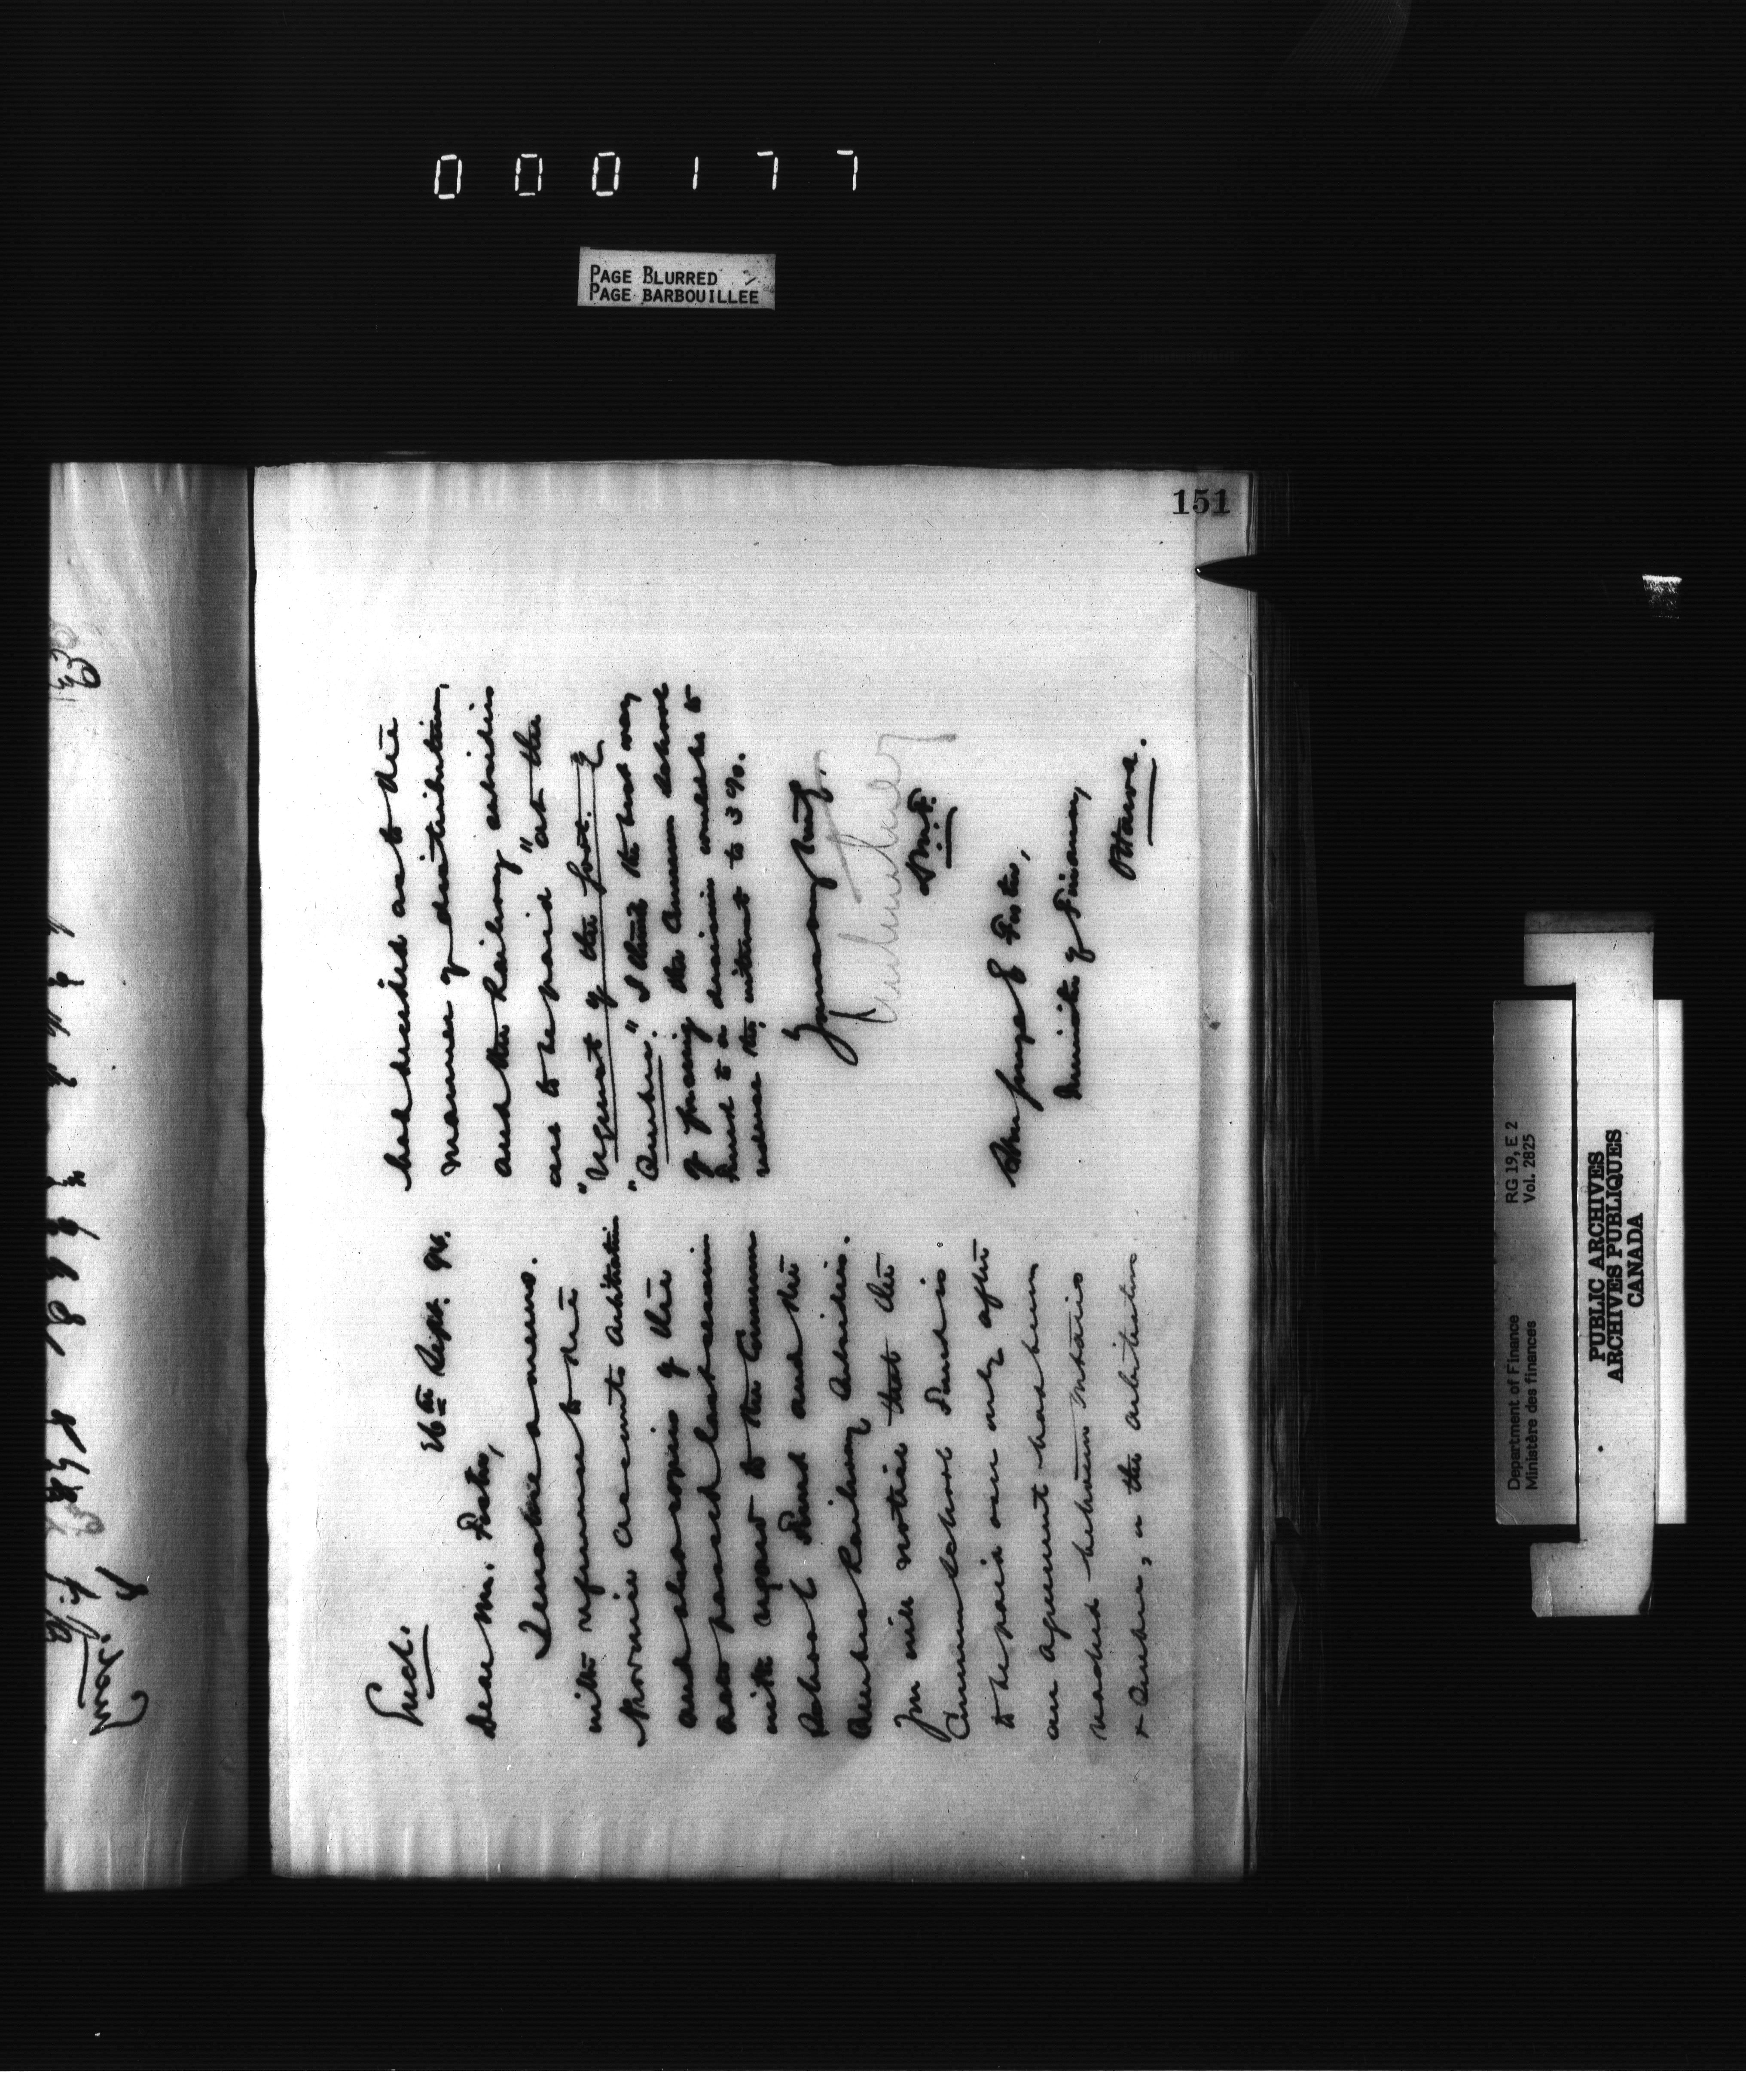 000177
PAGE BLURRED
PAGE BARBOUILLEE
151
Encl.
26th Sept. 90.
Dear Mr. Foster,
I enclose a memo.
with reference to the
Province Accounts Arbitration
and also copies of the
acts passed last session
with regard to the Common
School Fund and the
Quebec Railway Subsidies.
You will notice that the
Common School Fund is
to be paid over only after
an agreement has been
reached between Ontario
& Quebec, or the arbitrators
had decided as to the
manner of distribution,
and the Railway subsidies
are to be paid "at the
"request of the Govt. of
"Quebec." I think the best way
of forcing the Common School
Fund to a decision would be to
reduce the interest to 3%.
Yours very truly,
D.M.F.
Hon George E Foster,
Minister of Finance,
Ottawa.
Department of Finance
Ministère des finances
RG 19, E 2
Vol. 2825
PUBLIC ARCHIVES
ARCHIVES PUBLIQUES
CANADA